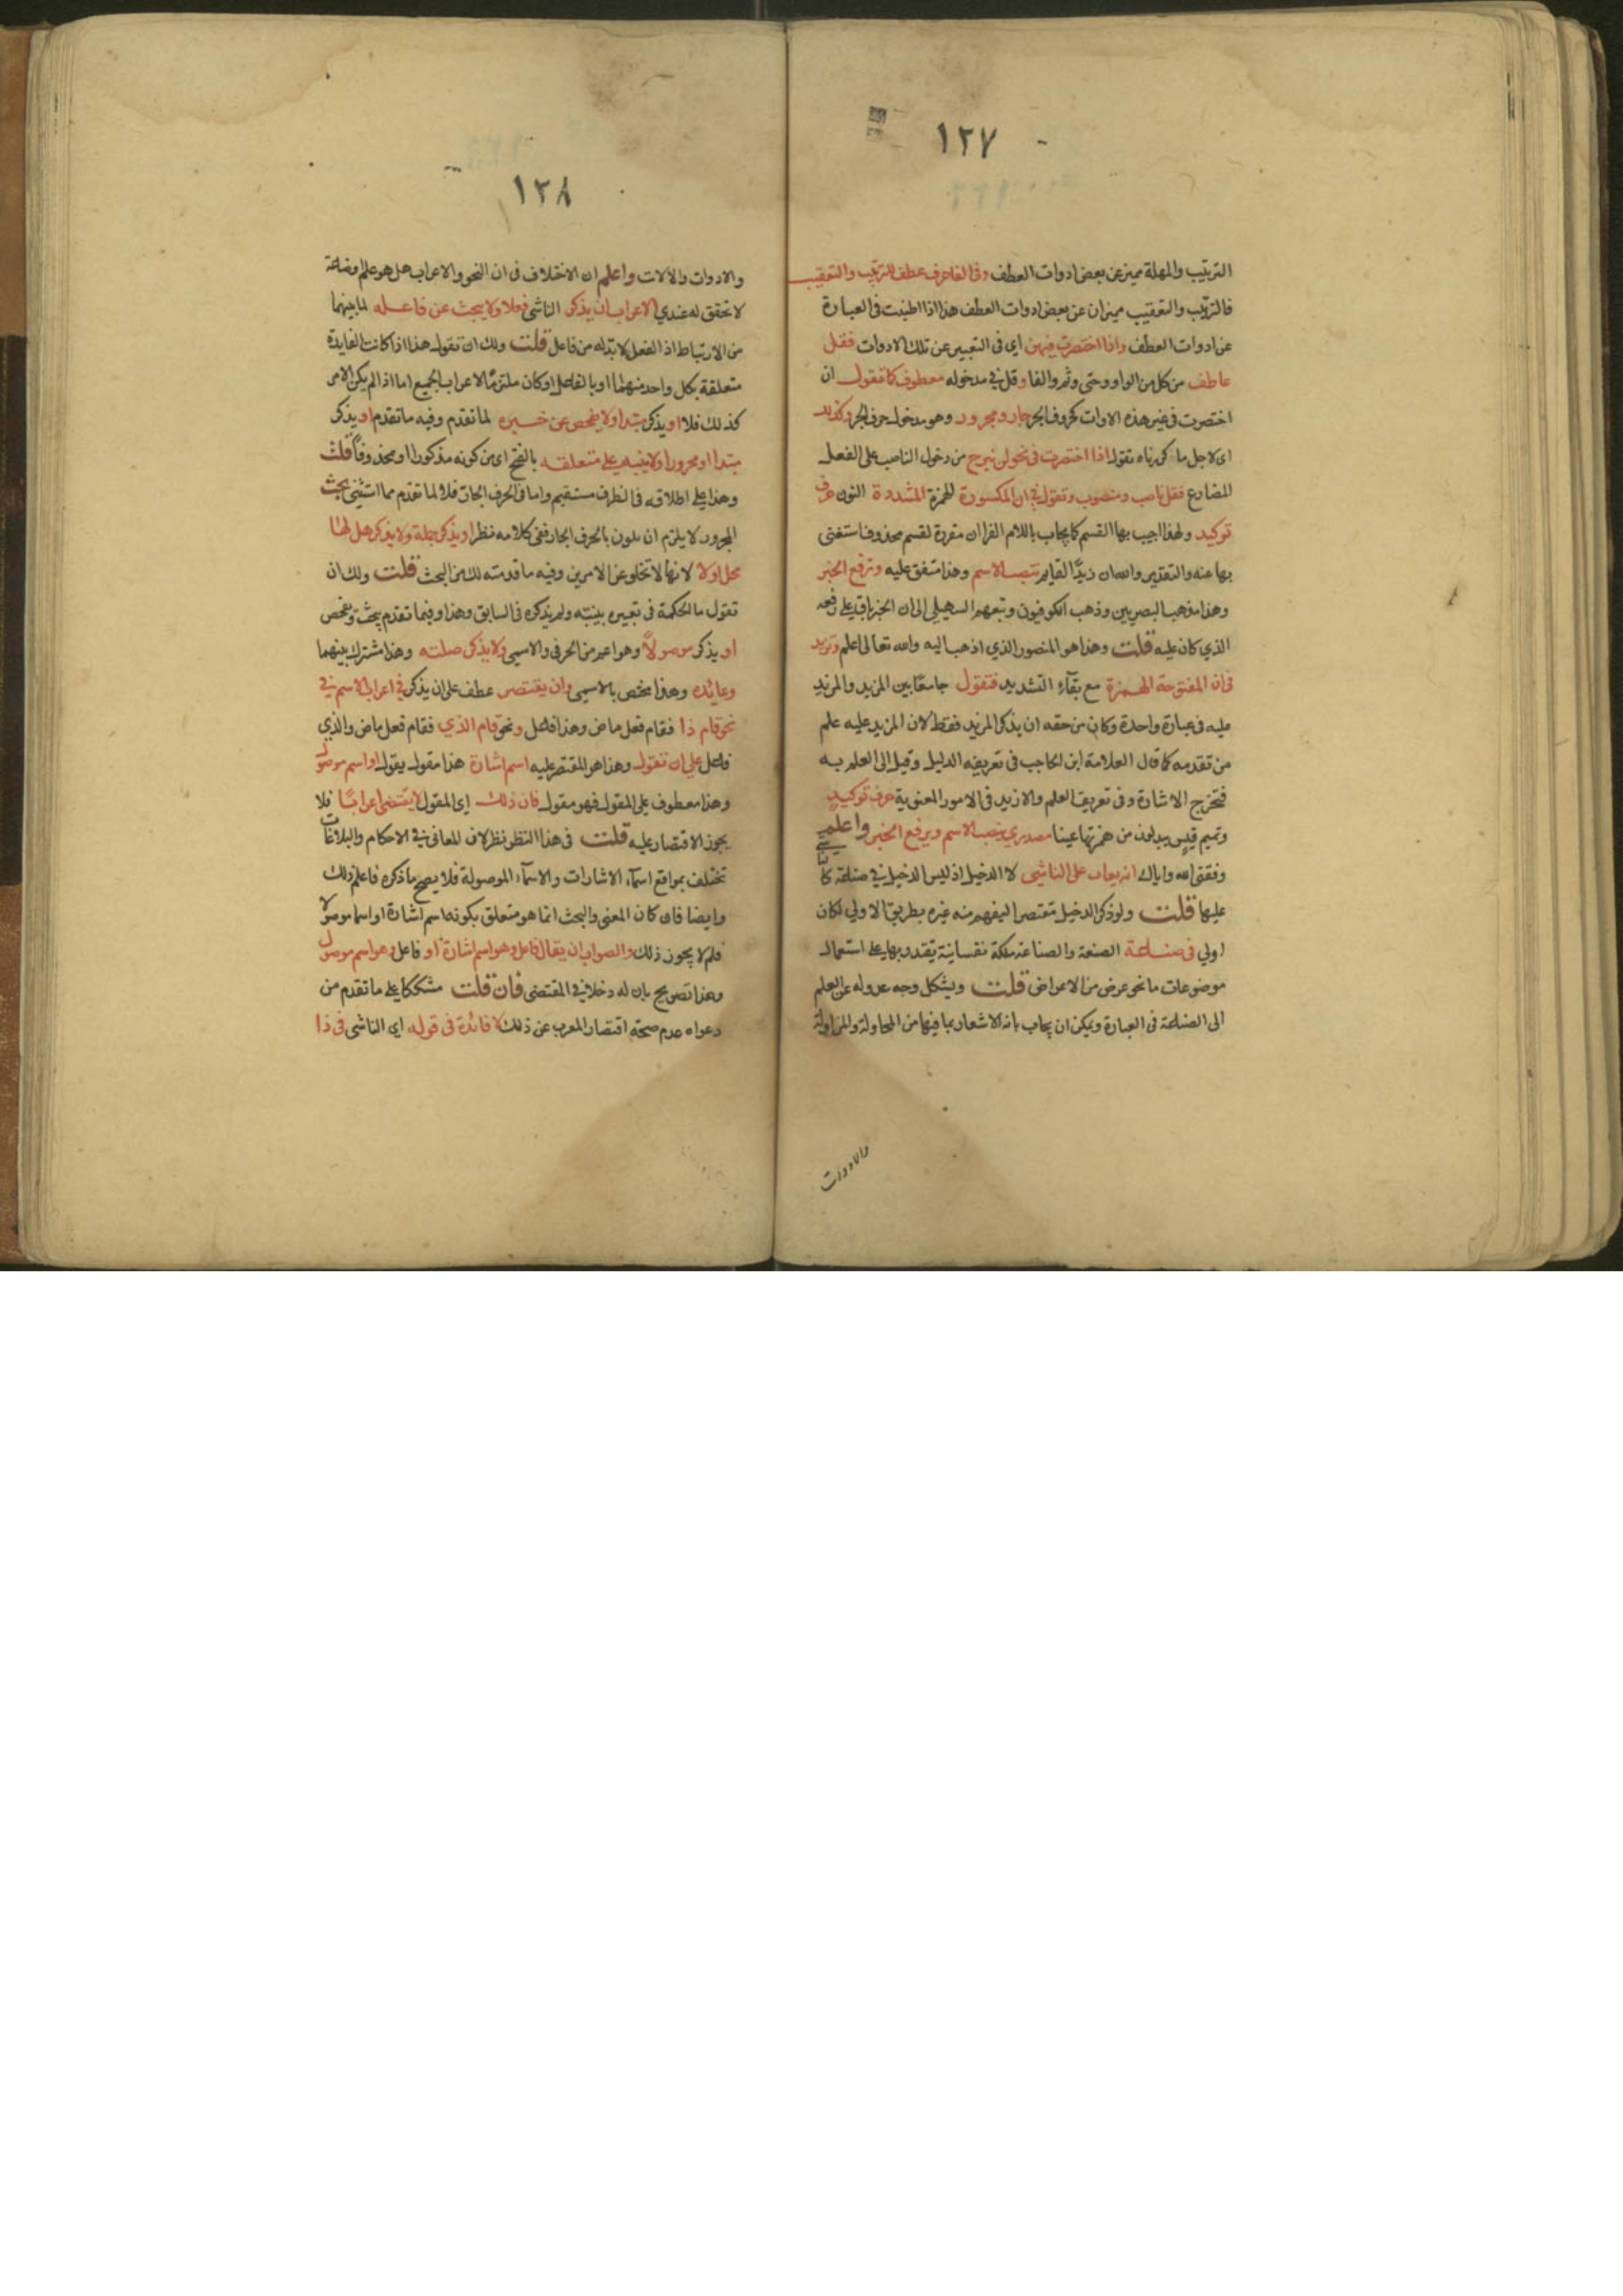 ١٢٧
الترتيب والمهلة مميز عن بعض ادوات العطف وفي الفا حرف عطف للترتيب والتعقيب
فالترتيب والتعقيب ميزان عن بعض ادوات العطف هذا اذا اطنبت في العبارة
عن ادوات العطف واذا اختصرت فيهن اي في التعبير عن تلك الادوات فقل
عاطف من كل من الواو وحتى وثم والفا وقل في مدخوله معطوف كما تقول ان
اختصرت في غير هذه الاوات كحروف الجر جار ومجرور وهو مدخول حرف الجر وكذلك
اي لاجل ما ذكرناه تقول اذا اختصرت في نحو لن نبرح من دخول الناصب على الفعل
المضارع فقل ناصب ومنصوب وتقول في ان المكسورة الهمزة المشددة النون حرف
توكيد ولهذا اجيب بها القسم كما يجاب باللام الفران مقررة لقسم محذوف استغنى
بها عنه والتقدير والله ان زيدًا لقايم تنصب الاسم وهذا متفق عليه وترفع الخبر
وهذا مذهب البصريين وذهب الكوفيون وتبعهم السهيلي الى ان الخبر باقي على رفعه
الذي كان عليه قلت وهذا هو المنصور الذي اذهب اليه والله تعالى اعلم وتزيد
في ان المفتوحة الهمزة مع بقآء التشديد فتقول جامعًا بين المزيد والمزيد
عليه في عبارة واحدة وكان من حقه ان يذكر المزيد فقط لان المزيد عليه علم
من تقدمه كما قال العلامة ابن الحاجب في تعريفه الدليل وقيل الى العلم به
فتخرج الاشارة وفي تعريف العلم والازيد في الامور المعنوية حرف توكيد
وتميم قيس يبدلون من همزتها عينا مصدري ينصب الاسم ويرفع الخبر واعلم
وفقني الله واياك انه يعاب على الناشي لا الدخيل اذ ليس الدخيل في صناعة
عليها قلت ولو ذكر الدخيل مقتصرا ليفهم منه غيره بطريق الاولي لكان
اولي في صناعة الصنعة والصناعة ملكة نفسانية يقتدر بها على استعمال
موضوعات ما نحو عرض من الاعراض قلت ويشكل وجه عدوله عن العلم
الى الصناعة في العبارة ويمكن ان يجاب بانه الاشعار بما فيها من المحاولة والمزاولة
والادوات
١٢٨
والادوات والالات واعلم ان الاختلاف في ان النحو والاعراب هل هو علم او صناعة
لا تحقق له عندي الاعراب ان يذكر الناشي فعلا ولا يبحث عن فاعله لما بينهما
من الارتباط اذ الفعل لا بد له من فاعل قلت ولك ان تقول هذا اذا كانت الفايدة
متعلقة بكل واحد منهما او بالفاعل او كان ملتزمًا لاعراب الجميع اما اذا لم يكن الامر
كذلك فلا او يذكر مبتدا ولا يفحص عن خبره لما تقدم وفيه ما تقدم او يذكر
مبتدا او مجرورا ولا ينبه على متعلقه بالفتح اي من كونه مذكورا او محذوفًا قلت
وهذا على اطلاقه في الظرف مستقيم واما في الحرف الجار فلا لما تقدم مما استثني بحث
المجرور لا يلزم ان يكون بالحرف الجار ففي كلامه نظر او يذكر جملة ولا يذكر هل لها
محل اولا لانها لا تخلو عن الامرين وفيه ما قدمته لك من البحث قلت ولك ان
تقول ما الحكمة في تعبيره بينبّه ولم يذكره في السابق وهذا وفيما تقدم يبحث ويفحص
او يذكر موصولًا وهو اعم من الحرفي والاسمي ولا يذكر صلته وهذا مشترك بينهما
وعائده وهذا مختص بالاسمي وان يقتصر عطف على ان يذكر في اعراب الاسم في
نحو قام ذا فقام فعل ماض وهذا فاعل ونحو قام الذي فقام فعل ماض والذي
فاعل على ان تقول وهذا هو المقتصر عليه اسم اشارة هذا مقول يقول او اسم موصول
وهذا معطوف على المقول فهو مقول فان ذلك اي المقول لا يقتضي اعرابًا فلا
يجوز الاقتصار عليه قلت في هذا النظر نظر لان المعاني في الاحكام والبلاغات
تختلف بمواقع اسمآء الاشارات والاسمآء الموصولة فلا يصح ما ذكره فاعلم ذلك
وايضا فان كان المعنى والبحث انما هو متعلق بكونه اسم اشارة او اسما موصولا
فلم لا يجوز ذلك والصواب ان يقال فاعل وهو اسم اشارة او فاعل وهو اسم موصول
وهذا تصريح بان له دخلا في المقتضى فان قلت مشككا على ما تقدم من
دعواه عدم صحة اقتصار المعرب عن ذلك لا فائدة في قوله اي الناشي في ذا